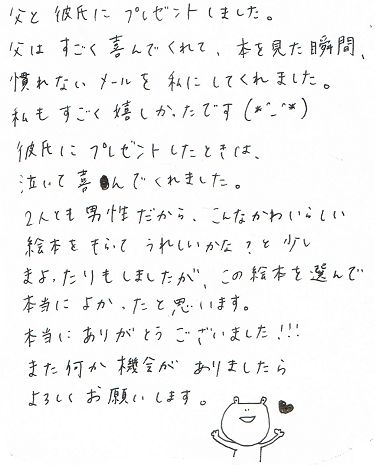 父と彼氏にプレゼントしました。
父はすごく喜んでくれて、本を見た瞬間、
慣れないメールを私にしてくれました。
私もすごく嬉しかったです(*^-^*)
彼氏にプレゼントしたときは、
泣いて喜んでくれました。
2人とも男性だから、こんなかわいらしい
絵本をもらってうれしいかな?と少し
まよったりもしましたが、この絵本を選んで
本当によかったと思います。
本当にありがとうございました!!!
また何か機会がありましたら
よろしくお願いします。